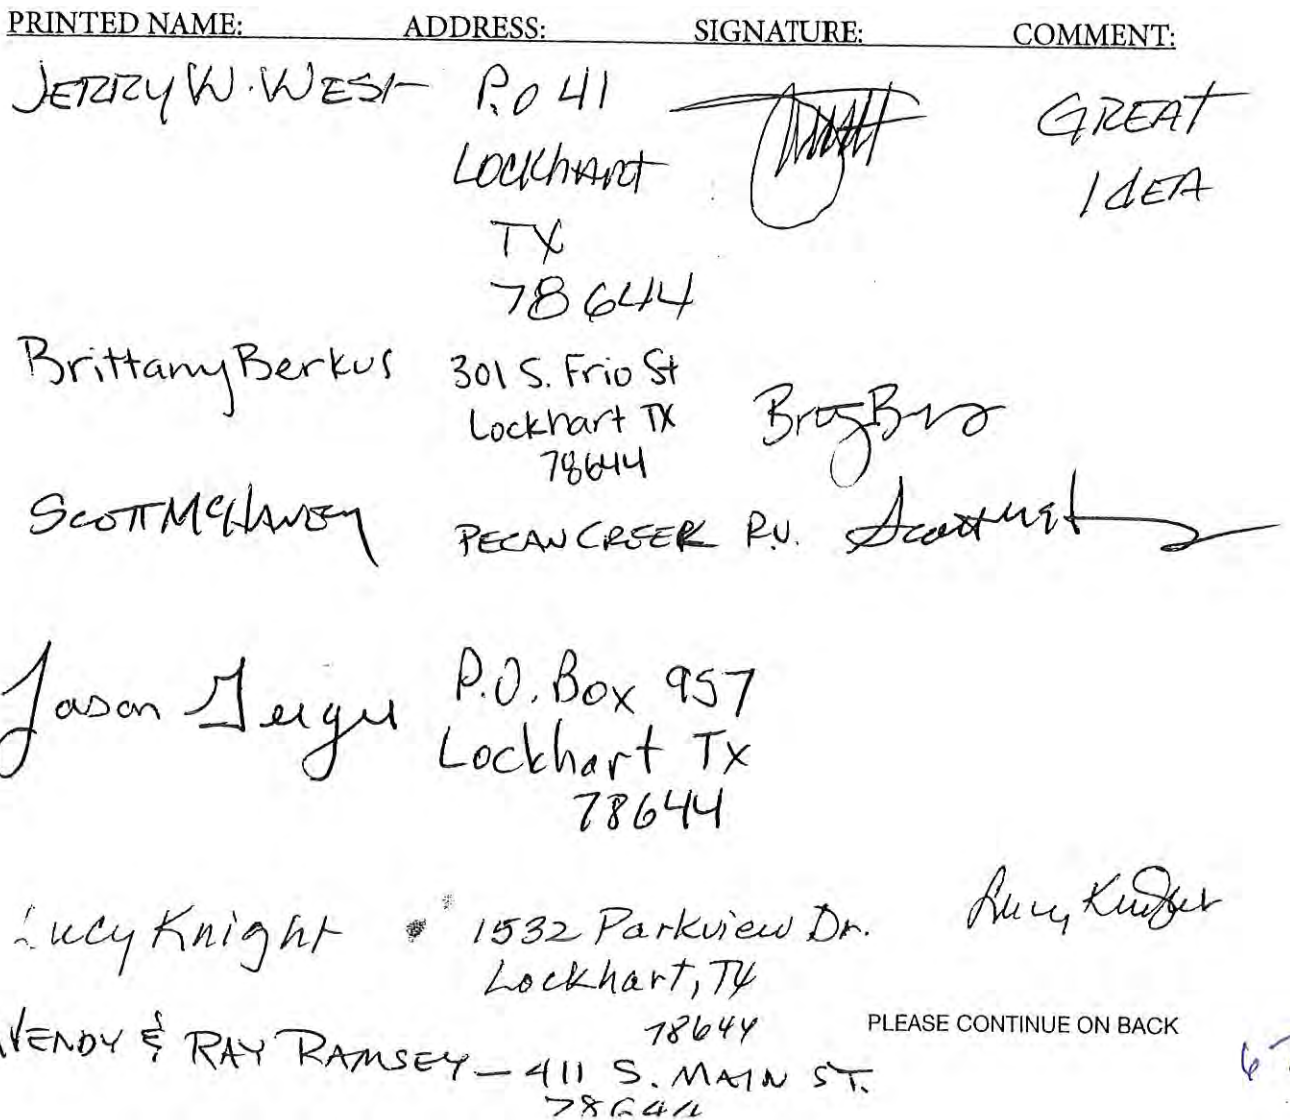 PRINTED NAME: ADDRESS: SIGNATURE: COMMENT:
JERRY W. WEST P.O 41 GREAT
Lockhart IdEA
TX
78644
Brittany Berkus 301 S. Frio St
Lockhart TX
78644
SCOTT PECAN CREEK R.V.
Jason P.O. Box 957
Lockhart Tx
78644
Lucy Knight 1532 Parkview Dr.
Lockhart, TX
78644 PLEASE CONTINUE ON BACK
WENDY & RAY RAMSEY - 411 S. MAIN ST.
78644